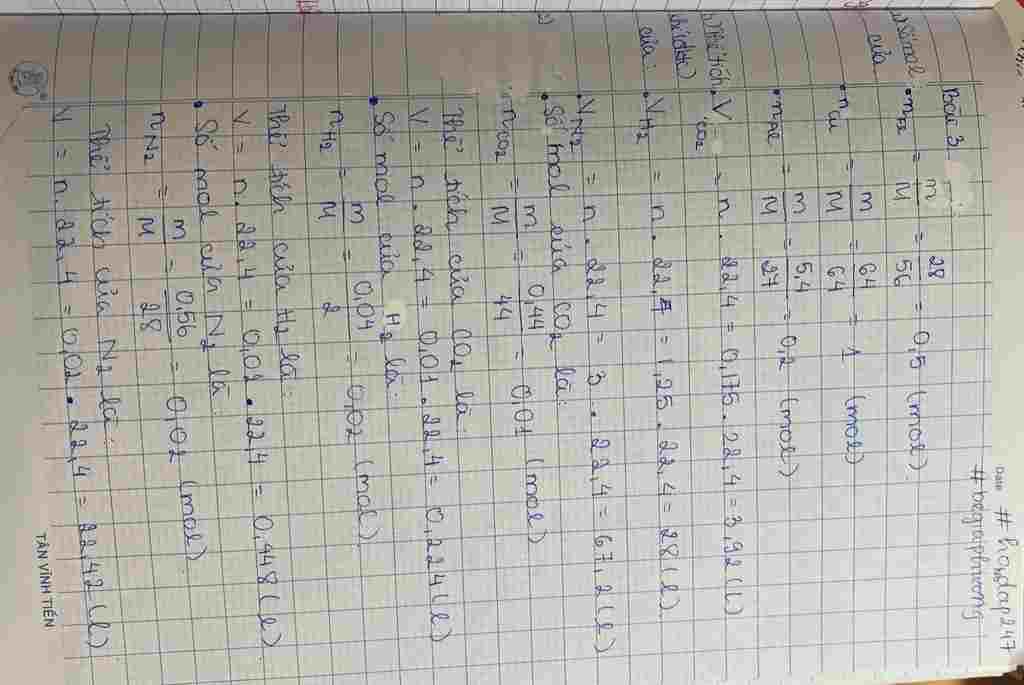 #hoidap247
#begiaphuong
Bài 3
a) Số mol của: • n = m/M = 28/56 = 0,5 (mol)
• n Cu = m/M = 64/64 = 1 (mol)
• n = m/M = 54/27 = 0,2 (mol)
b) Thể tích (đktc) của: • V CO2 = n . 22,4 = 0,175 . 22,4 = 3,92 (l)
• V H2 = n . 22,4 = 1,25 . 22,4 = 28 (l)
• V N2 = n . 22,4 = 3 . 22,4 = 67,2 (l)
c) • Số mol của CO2 là:
n CO2 = m/M = 0,44/44 = 0,01 (mol)
Thể tích của CO2 là:
V = n . 22,4 = 0,01 . 22,4 = 0,224 (l)
• Số mol của H2 là:
n H2 = m/M = 0,04/2 = 0,02 (mol)
Thể tích của H2 là:
V = n . 22,4 = 0,02 . 22,4 = 0,448 (l)
• Số mol của N2 là:
n N2 = m/M = 0,56/28 = 0,02 (mol)
Thể tích của N2 là:
V = n . 22,4 = 0,02 . 22,4 = 22,42 (l)
TÂN VĨNH TIẾN